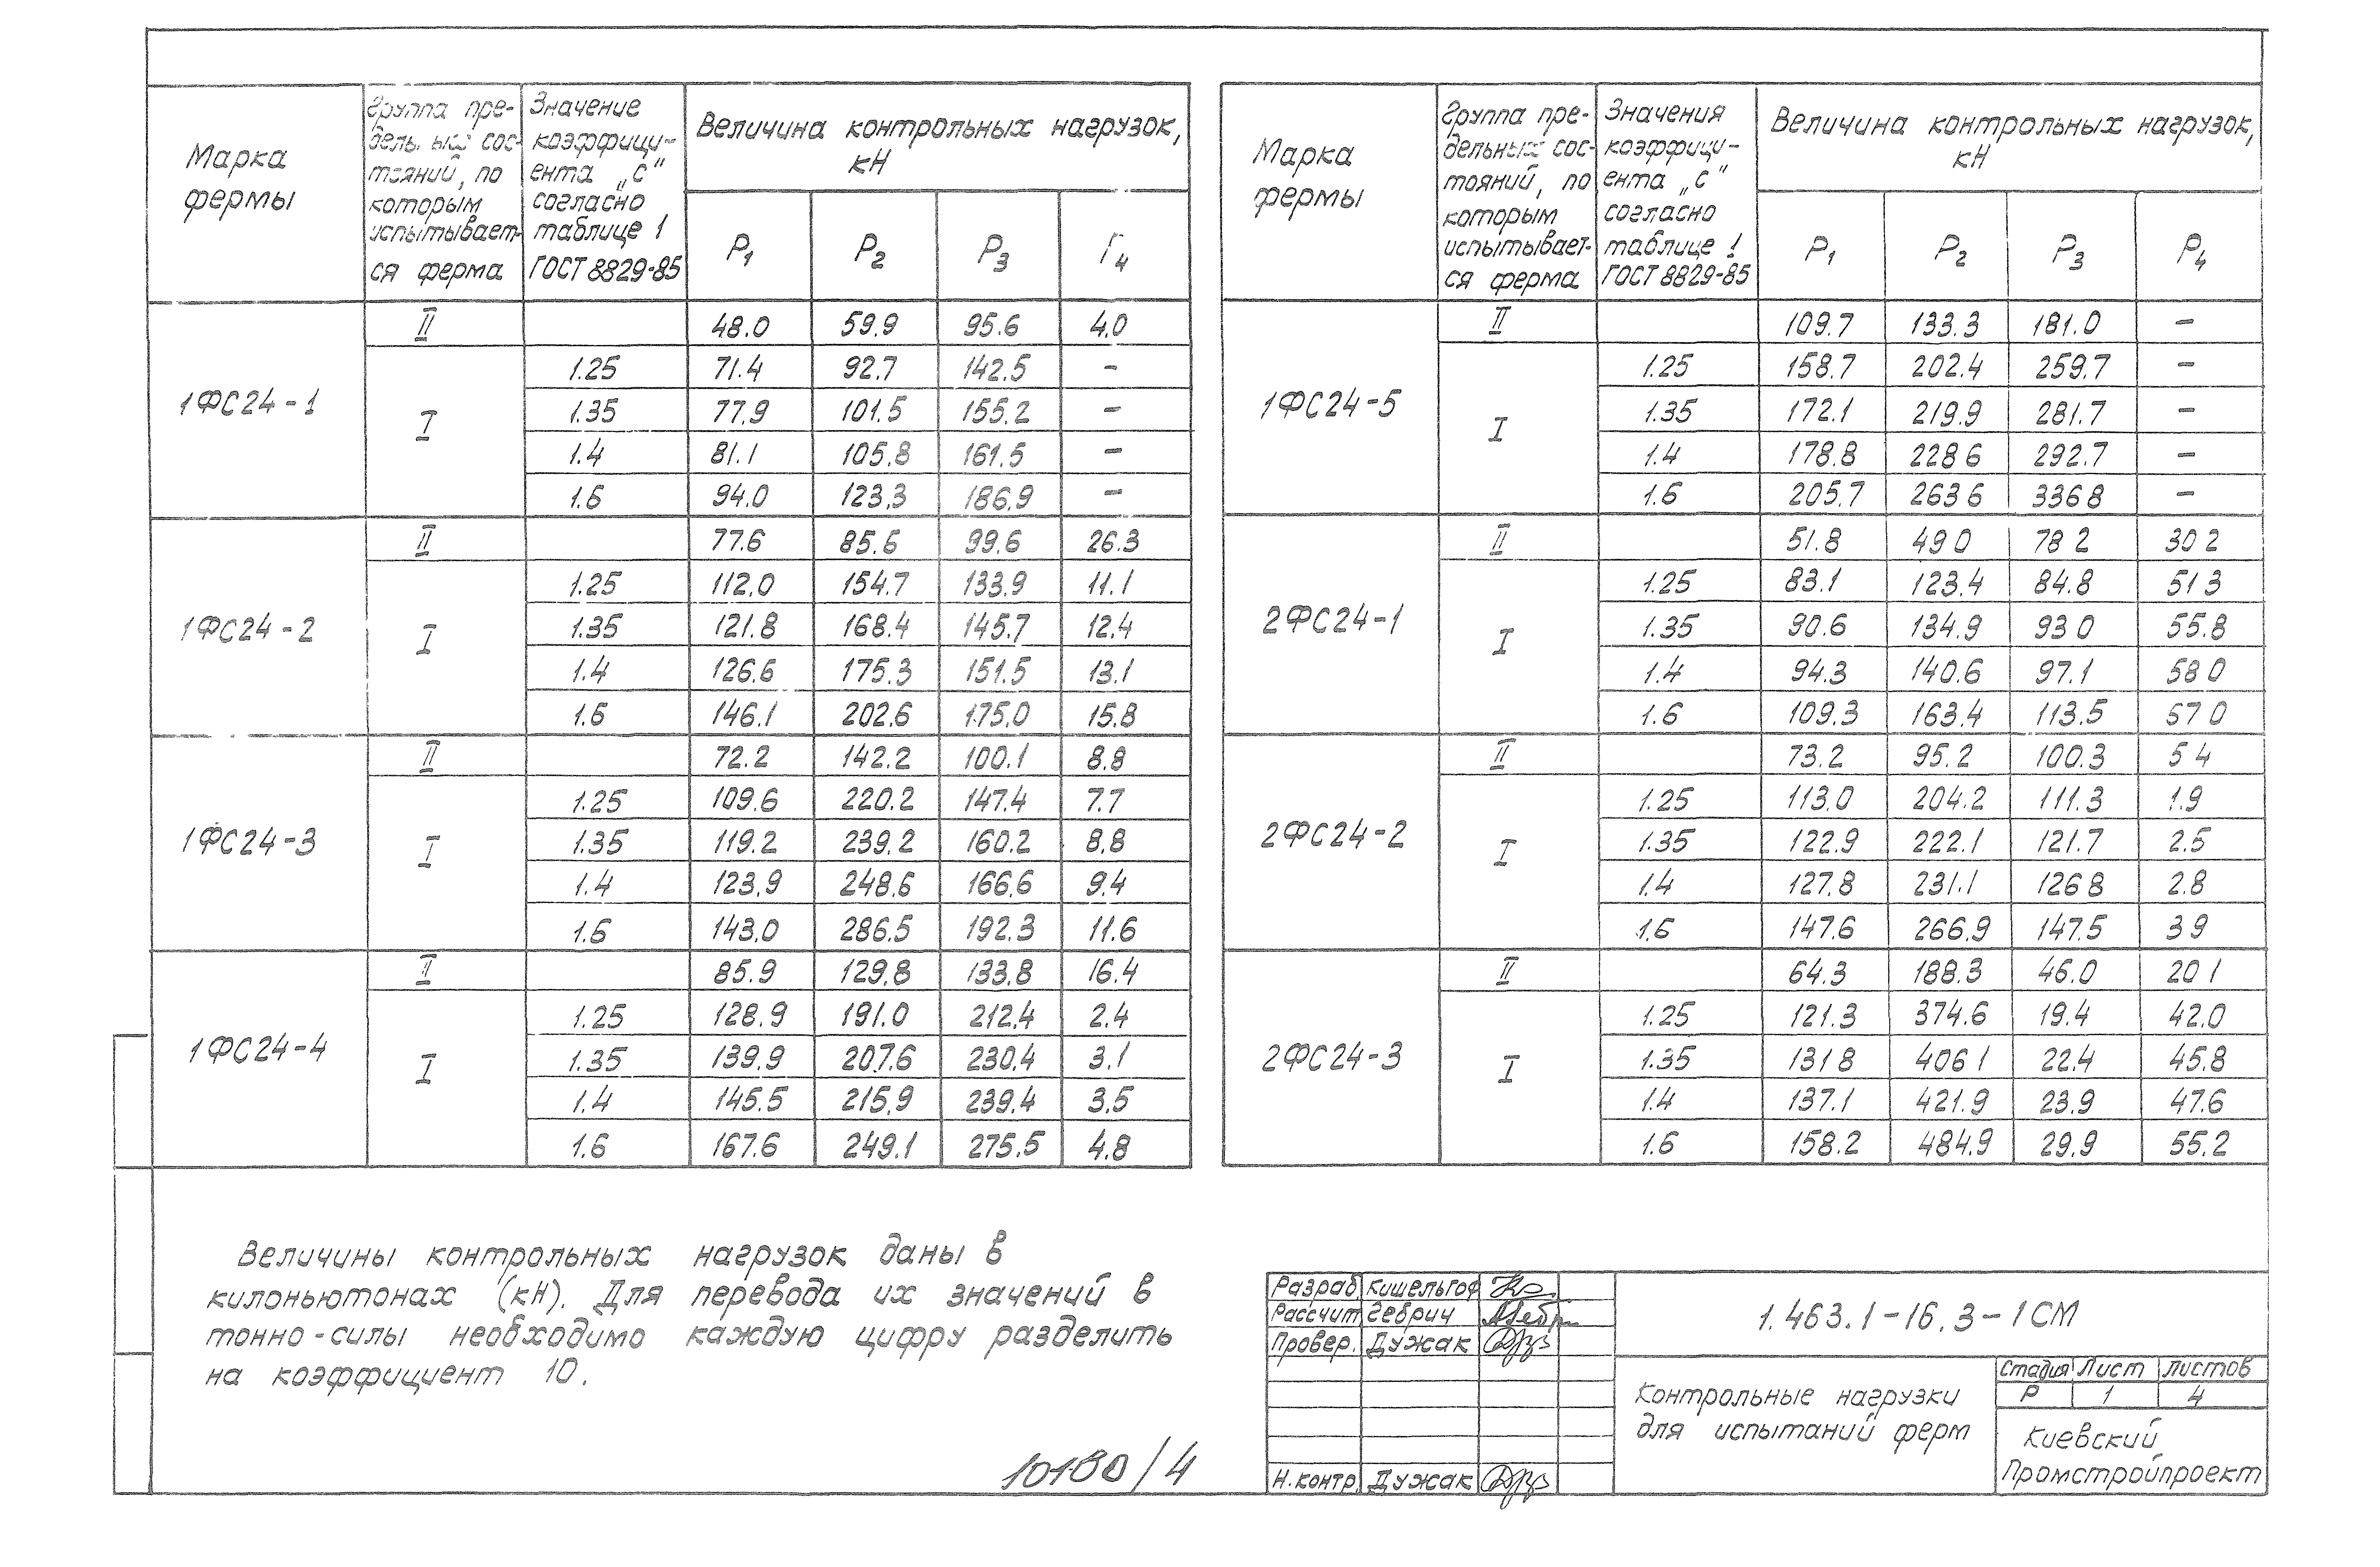 Марка фермы | Группа пре-дельных сос-тояний, по которым испытывает-ся ферма | Значение коэффици-ента „с" согласно таблице 1 ГОСТ 8829-85 | Величина контрольных нагрузок, кН
P1 | P2 | P3 | P4
1ФС24-1 | II | | 48.0 | 59.9 | 95.6 | 4.0
I | 1.25 | 71.4 | 92.7 | 142.5 | –
1.35 | 77.9 | 101.5 | 155.2 | –
1.4 | 81.1 | 105.8 | 161.5 | –
1.6 | 94.0 | 123.3 | 186.9 | –
1ФС24-2 | II | | 77.6 | 85.6 | 99.6 | 26.3
I | 1.25 | 112.0 | 154.7 | 133.9 | 11.1
1.35 | 121.8 | 168.4 | 145.7 | 12.4
1.4 | 126.6 | 175.3 | 151.5 | 13.1
1.6 | 146.1 | 202.6 | 175.0 | 15.8
1ФС24-3 | II | | 72.2 | 142.2 | 100.1 | 8.8
I | 1.25 | 109.6 | 220.2 | 147.4 | 7.7
1.35 | 119.2 | 239.2 | 160.2 | 8.8
1.4 | 123.9 | 248.6 | 166.6 | 9.4
1.6 | 143.0 | 286.5 | 192.3 | 11.6
1ФС24-4 | II | | 85.9 | 129.8 | 133.8 | 16.4
I | 1.25 | 128.9 | 191.0 | 212.4 | 2.4
1.35 | 139.9 | 207.6 | 230.4 | 3.1
1.4 | 145.5 | 215.9 | 239.4 | 3.5
1.6 | 167.6 | 249.1 | 275.5 | 4.8
Марка фермы | Группа пре-дельных сос-тояний, по которым испытывает-ся ферма | Значения коэффици-ента „с" согласно таблице 1 ГОСТ 8829-85 | Величина контрольных нагрузок, кН
P1 | P2 | P3 | P4
1ФС24-5 | II | | 109.7 | 133.3 | 181.0 | –
I | 1.25 | 158.7 | 202.4 | 259.7 | –
1.35 | 172.1 | 219.9 | 281.7 | –
1.4 | 178.8 | 228 6 | 292.7 | –
1.6 | 205.7 | 263 6 | 336 8 | –
2ФС24-1 | II | | 51.8 | 49 0 | 78 2 | 30 2
I | 1.25 | 83.1 | 123.4 | 84.8 | 51 3
1.35 | 90.6 | 134.9 | 93 0 | 55.8
1.4 | 94.3 | 140.6 | 97.1 | 58 0
1.6 | 109.3 | 163.4 | 113.5 | 67 0
2ФС24-2 | II | | 73.2 | 95.2 | 100.3 | 5 4
I | 1.25 | 113.0 | 204.2 | 111.3 | 1.9
1.35 | 122.9 | 222.1 | 121.7 | 2.5
1.4 | 127.8 | 231.1 | 126 8 | 2.8
1.6 | 147.6 | 266.9 | 147.5 | 3 9
2ФС24-3 | II | | 64.3 | 188.3 | 46.0 | 20 1
I | 1.25 | 121.3 | 374.6 | 19.4 | 42.0
1.35 | 131 8 | 406 1 | 22.4 | 45.8
1.4 | 137.1 | 421.9 | 23.9 | 47.6
1.6 | 158.2 | 484.9 | 29.9 | 55.2
Величины контрольных нагрузок даны в
килоньютонах (кН). Для перевода их значений в
тонно-силы необходимо каждую цифру разделить
на коэффициент 10.
10180/4
Разраб | Кишельгоф
Рассчит | Гебрич
Провер. | Дужак
Н.контр. | Дужак
1.463.1-16.3-1СМ
Контрольные нагрузки
для испытаний ферм
Стадия | Лист | Листов
Р | 1 | 4
Киевский
Промстройпроект